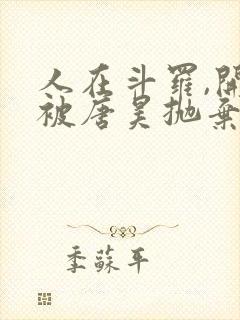 人在斗羅,開
被唐昊抛棄
季蘇平